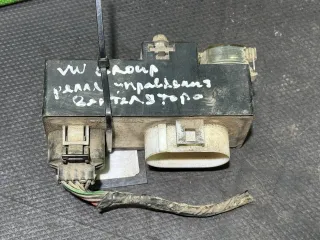 VW GROUP
реле управления
вентилятора